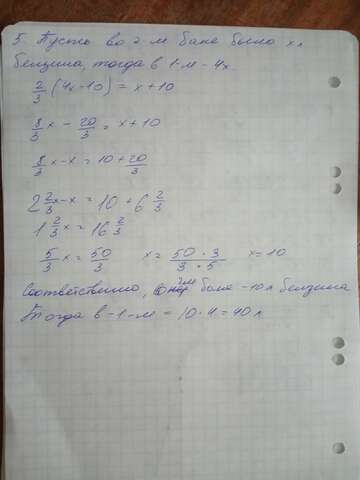 5. Пусть во 2-м баке было x л
бензина, тогда в 1-м - 4x
2/3 (4x-10) = x+10
8/3 x - 20/3 = x+10
8/3 x - x = 10 + 20/3
2 2/3 x - x = 10 + 6 2/3
1 2/3 x = 16 2/3
5/3 x = 50/3 x = 50 · 3 / 3 · 5 x = 10
Соответственно, во 2м баке - 10 л бензина
Тогда в - 1 - м - 10 · 4 = 40 л